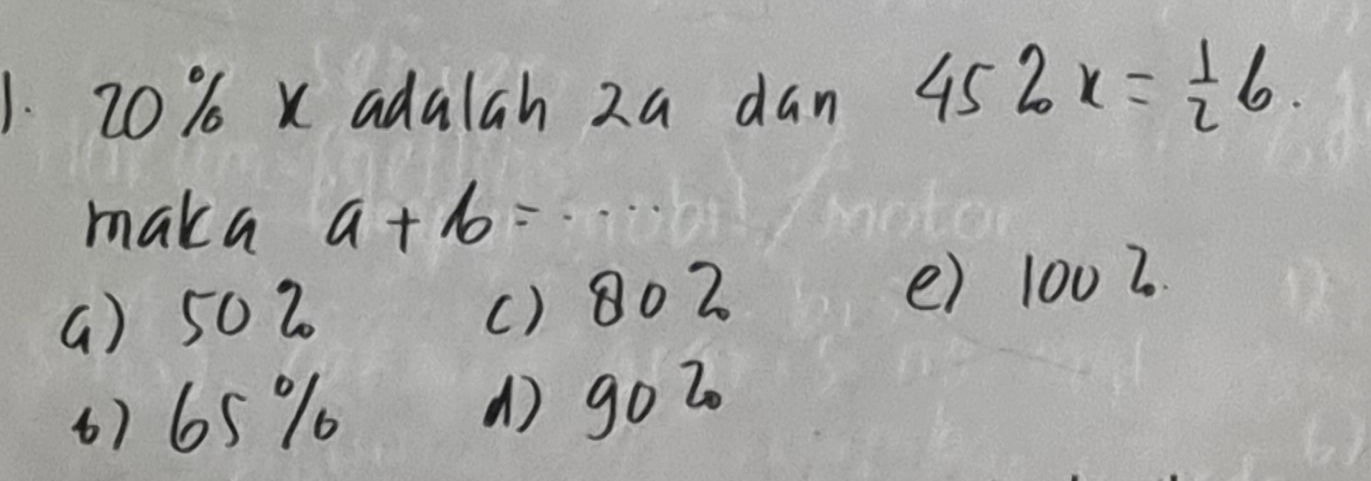 1. 20% x adalah 2a dan 45% x = 1/2 b.
maka a + b = .....
a) 50% c) 80% e) 100%.
b) 65% d) 90%